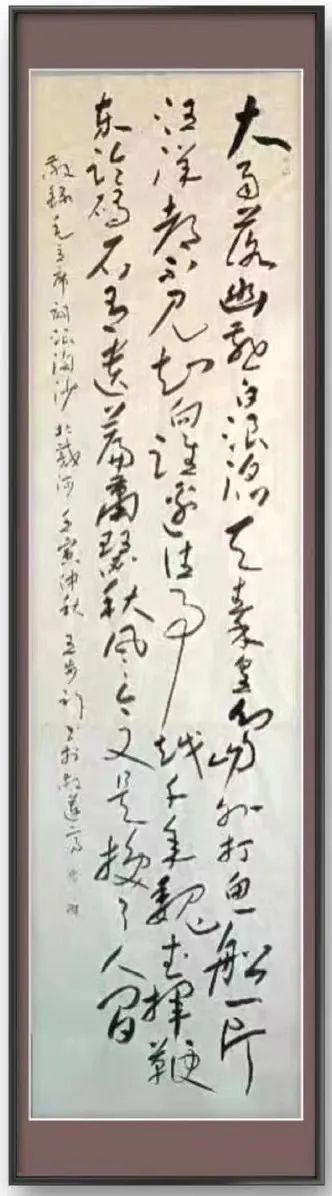 大雨落幽燕白浪滔天秦皇岛外打鱼船一片
汪洋都不见知向谁边往事越千年魏武揮鞭
东临碣石有遗篇萧瑟秋风今又是换了人间
敬録毛主席词浪淘沙北戴河壬寅仲秋